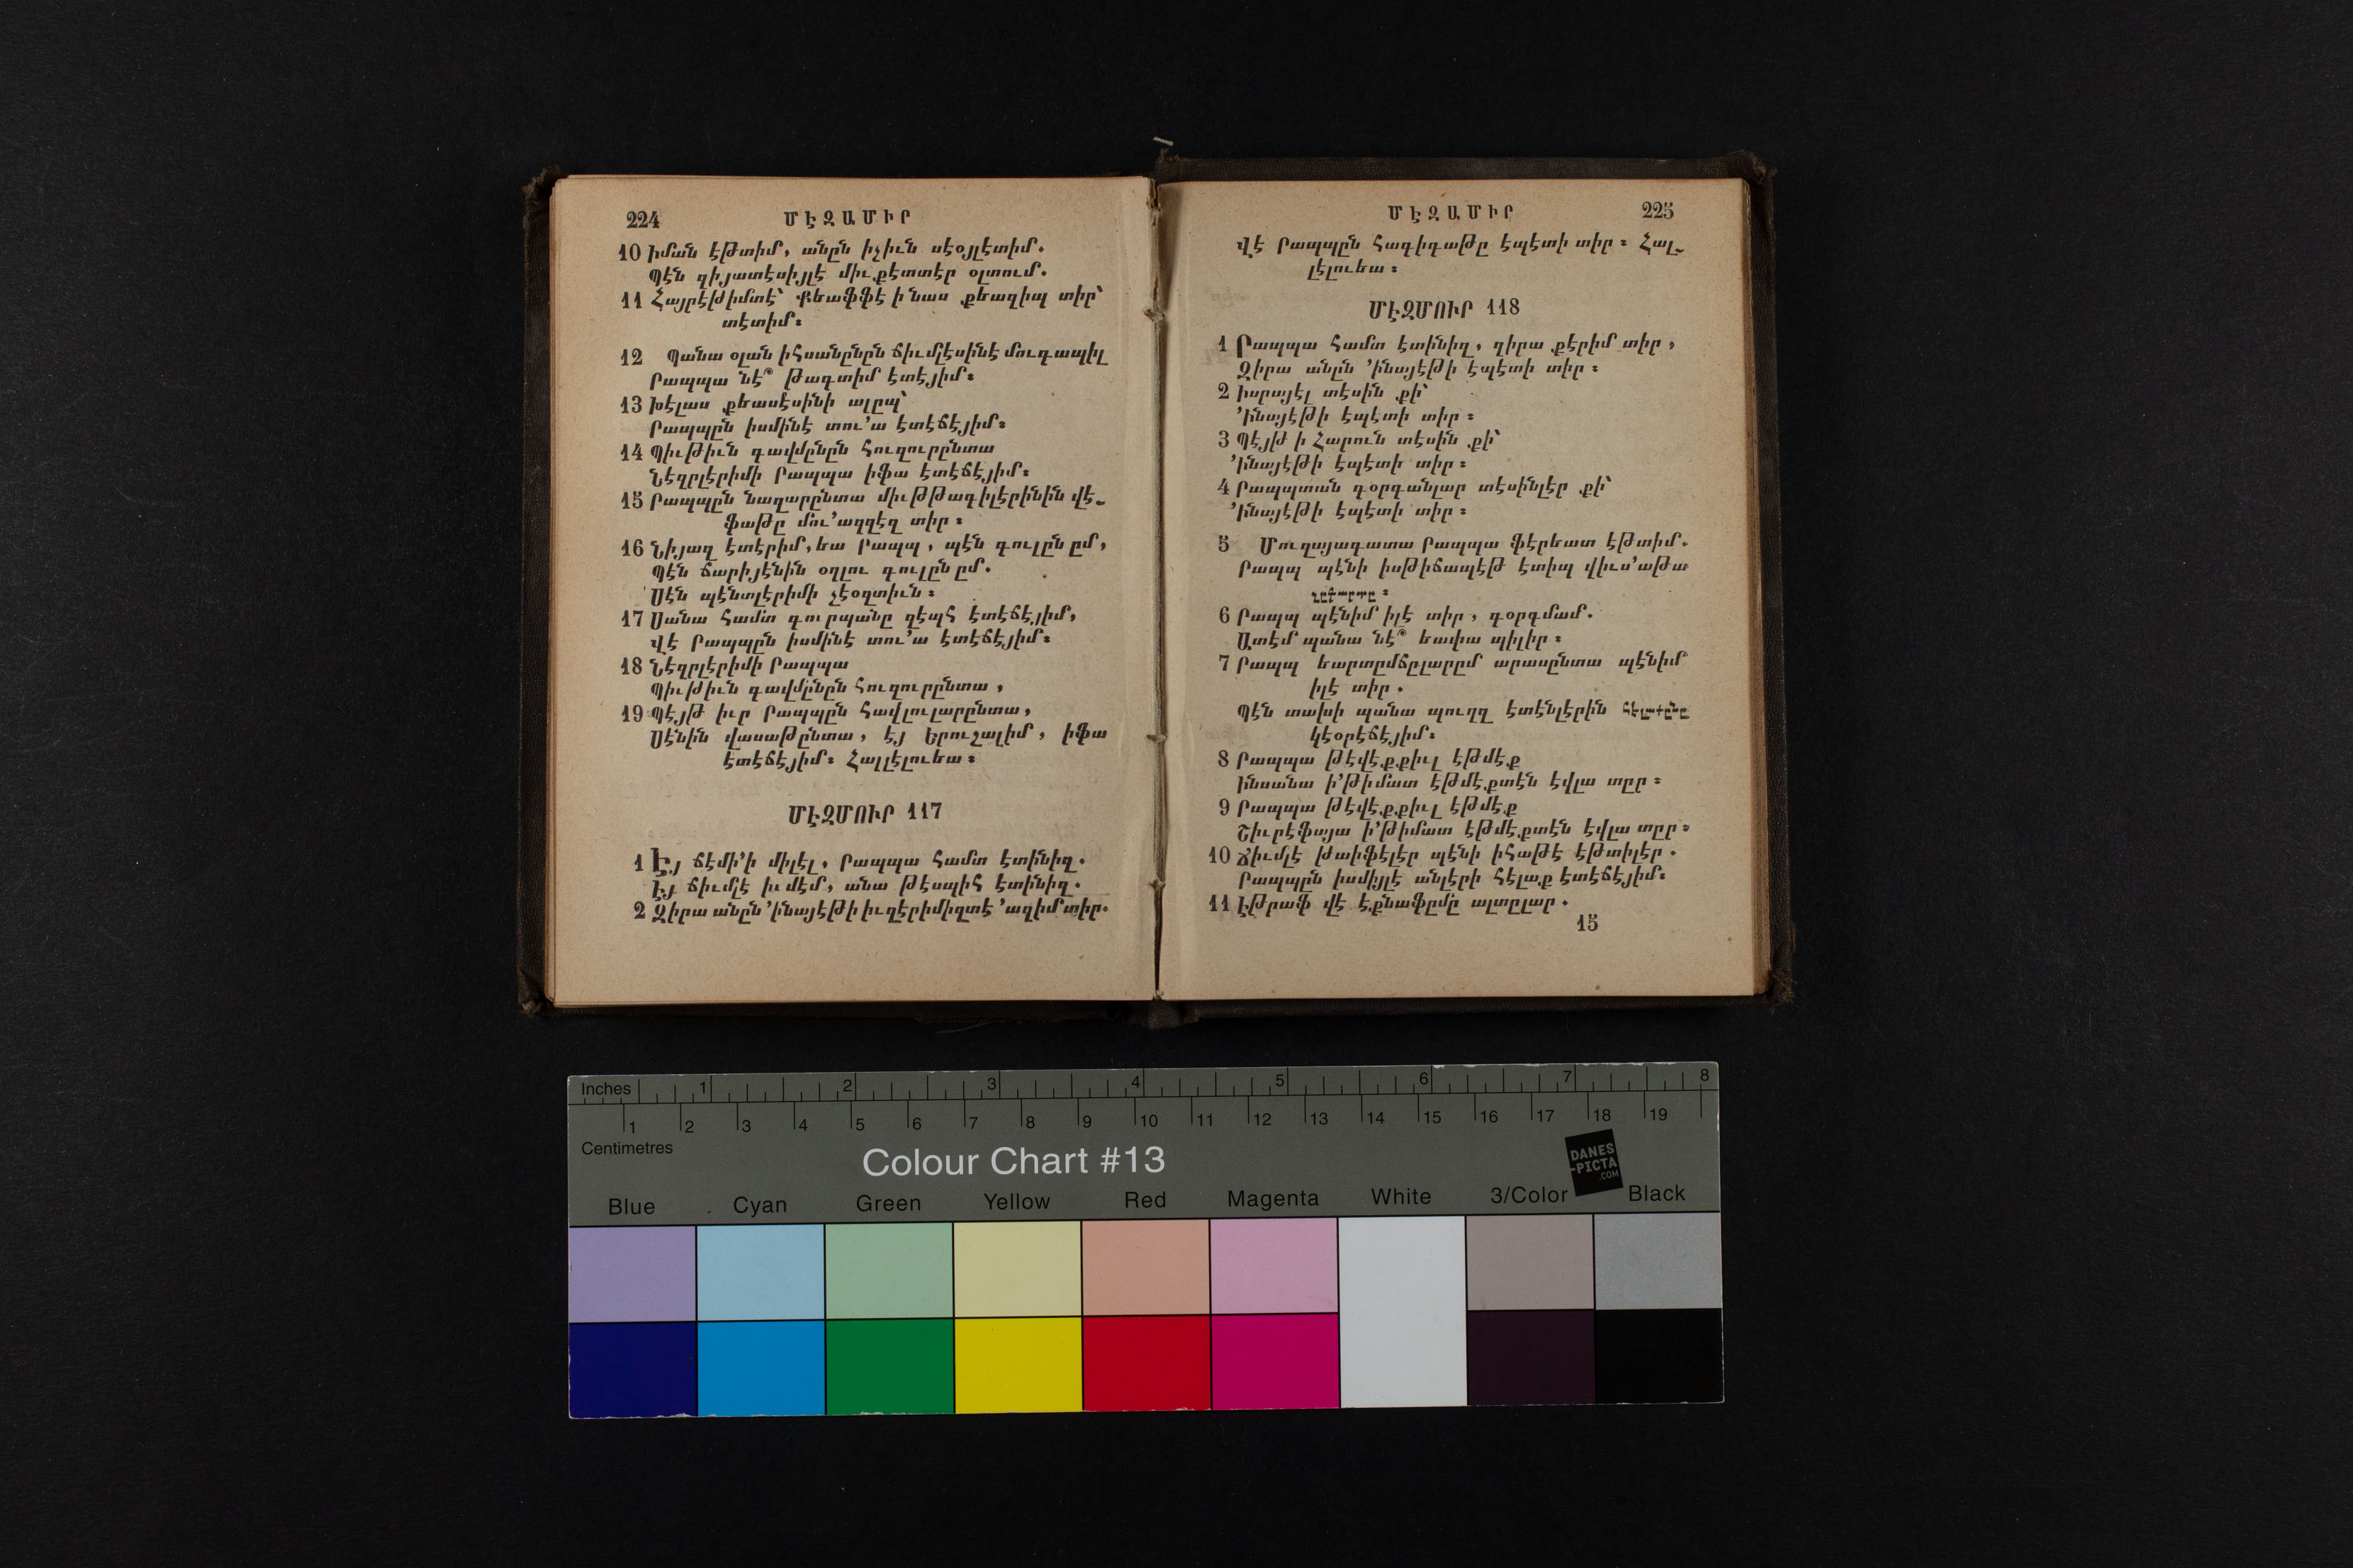 224 ՄԷԶԱՄԻՐ
10 Իման էթտիմ, անըն իչիւն սէօյլէտիմ.
Պէն զիյատէսիյլէ միւքէտտէր օլտում.
11 Հայրէթիմտէ՝ Քեաֆֆէ ի նաս քեազիպ տիր՝
տէտիմ։
12 Պանա օլան իհսանընըն ճիւմլէսինէ մուգապիլ
Րապպա նէ՞ թագտիմ էտէյիմ։
13 Խէլաս քեասէսինի ալըպ՝
Րապպըն իսմինէ տու՚ա էտէճէյիմ։
14 Պիւթիւն գավմընըն հուզուրընտա
Նէզրլէրիմի Րապպա իֆա էտէճէյիմ։
15 Րապպըն նազարընտա միւթթագիլէրինին վէ֊
ֆաթը մու՚ազզէզ տիր։
16 Նիյազ էտէրիմ, եա Րապպ, պէն գուլըն ըմ,
Պէն ճարիյէնին օղլու գուլըն ըմ.
Սէն պէնտլէրիմի չէօզտիւն։
17 Սանա համտ գուրպանը զէպհ էտէճէյիմ,
Վէ Րապպըն իսմինէ տու՚ա էտէճէյիմ։
18 Նէզրլէրիմի Րապպա
Պիւթիւն գավմընըն հուզուրընտա,
19 Պէյթ իւր Րապպըն հավլուլարընտա,
Սէնին վասաթընտա, էյ Երուշալիմ, իֆա
էտէճէյիմ։ Հալլէլուեա։
ՄԷԶՄՈՒՐ 117
1 Էյ ճէմի՚ի միլէլ, Րապպա համտ էտինիզ.
Էյ ճիւմլէ իւմէմ, անա թէսպիհ էտինիզ.
2 Զիրա անըն ՚ինայէթի իւզէրիմիզտէ ՚ազիմ տիր.
ՄԷԶԱՄԻՐ 225
Վէ Րապպըն հագիգաթը էպէտի տիր։ Հալ֊
լէլուեա։
ՄԷԶՄՈՒՐ 118
1 Րապպա համտ էտինիզ, զիրա քէրիմ տիր,
Զիրա անըն ՚ինայէթի էպէտի տիր։
2 Իսրայէլ տէսին քի՝
՚Ինայէթի էպէտի տիր։
3 Պէյթ ի Հարուն տէսին քի՝
՚Ինայէթի էպէտի տիր։
4 Րապպտան գօրգանլար տէսինլէր քի՝
՚Ինայէթի էպէտի տիր։
5 Մուզայագատա Րապպա ֆէրեատ էթտիմ.
Րապպ պէնի իսթիճապէթ էտիպ վիւս՚աթա
չըքարտը։
6 Րապպ պէնիմ իլէ տիր, գօրգմամ.
Ատէմ պանա նէ՞ եափա պիլիր։
7 Րապպ եարտըմճըլարըմ արասընտա պէնիմ
իլէ տիր.
Պէն տախի պանա պուղզ էտէնլէրին հէլաքընը
կէօրէճէյիմ։
8 Րապպա թէվէքքիւլ էթմէք
Ինսանա ի՚թիմատ էթմէքտէն էվլա տըր։
9 Րապպա թէվէքքիւլ էթմէք
Շիւրէֆայա ի՚թիմատ էթմէքտէն էվլա տըր։
10 Ճիւմլէ թաիֆէլէր պէնի իհաթէ էթտիլէր.
Րապպըն իսմիյլէ անլէրի հէլաք էտէճէյիմ։
11 Էթրաֆ վէ էքնաֆըմը ալտըլար.
15
Inches 1 2 3 4 5 6 7 8
1 2 3 4 5 6 7 8 9 10 11 12 13 14 15 16 17 18 19
Centimetres
Colour Chart #13
DANES
-PICTA
.COM
Blue Cyan Green Yellow Red Magenta White 3/Color Black